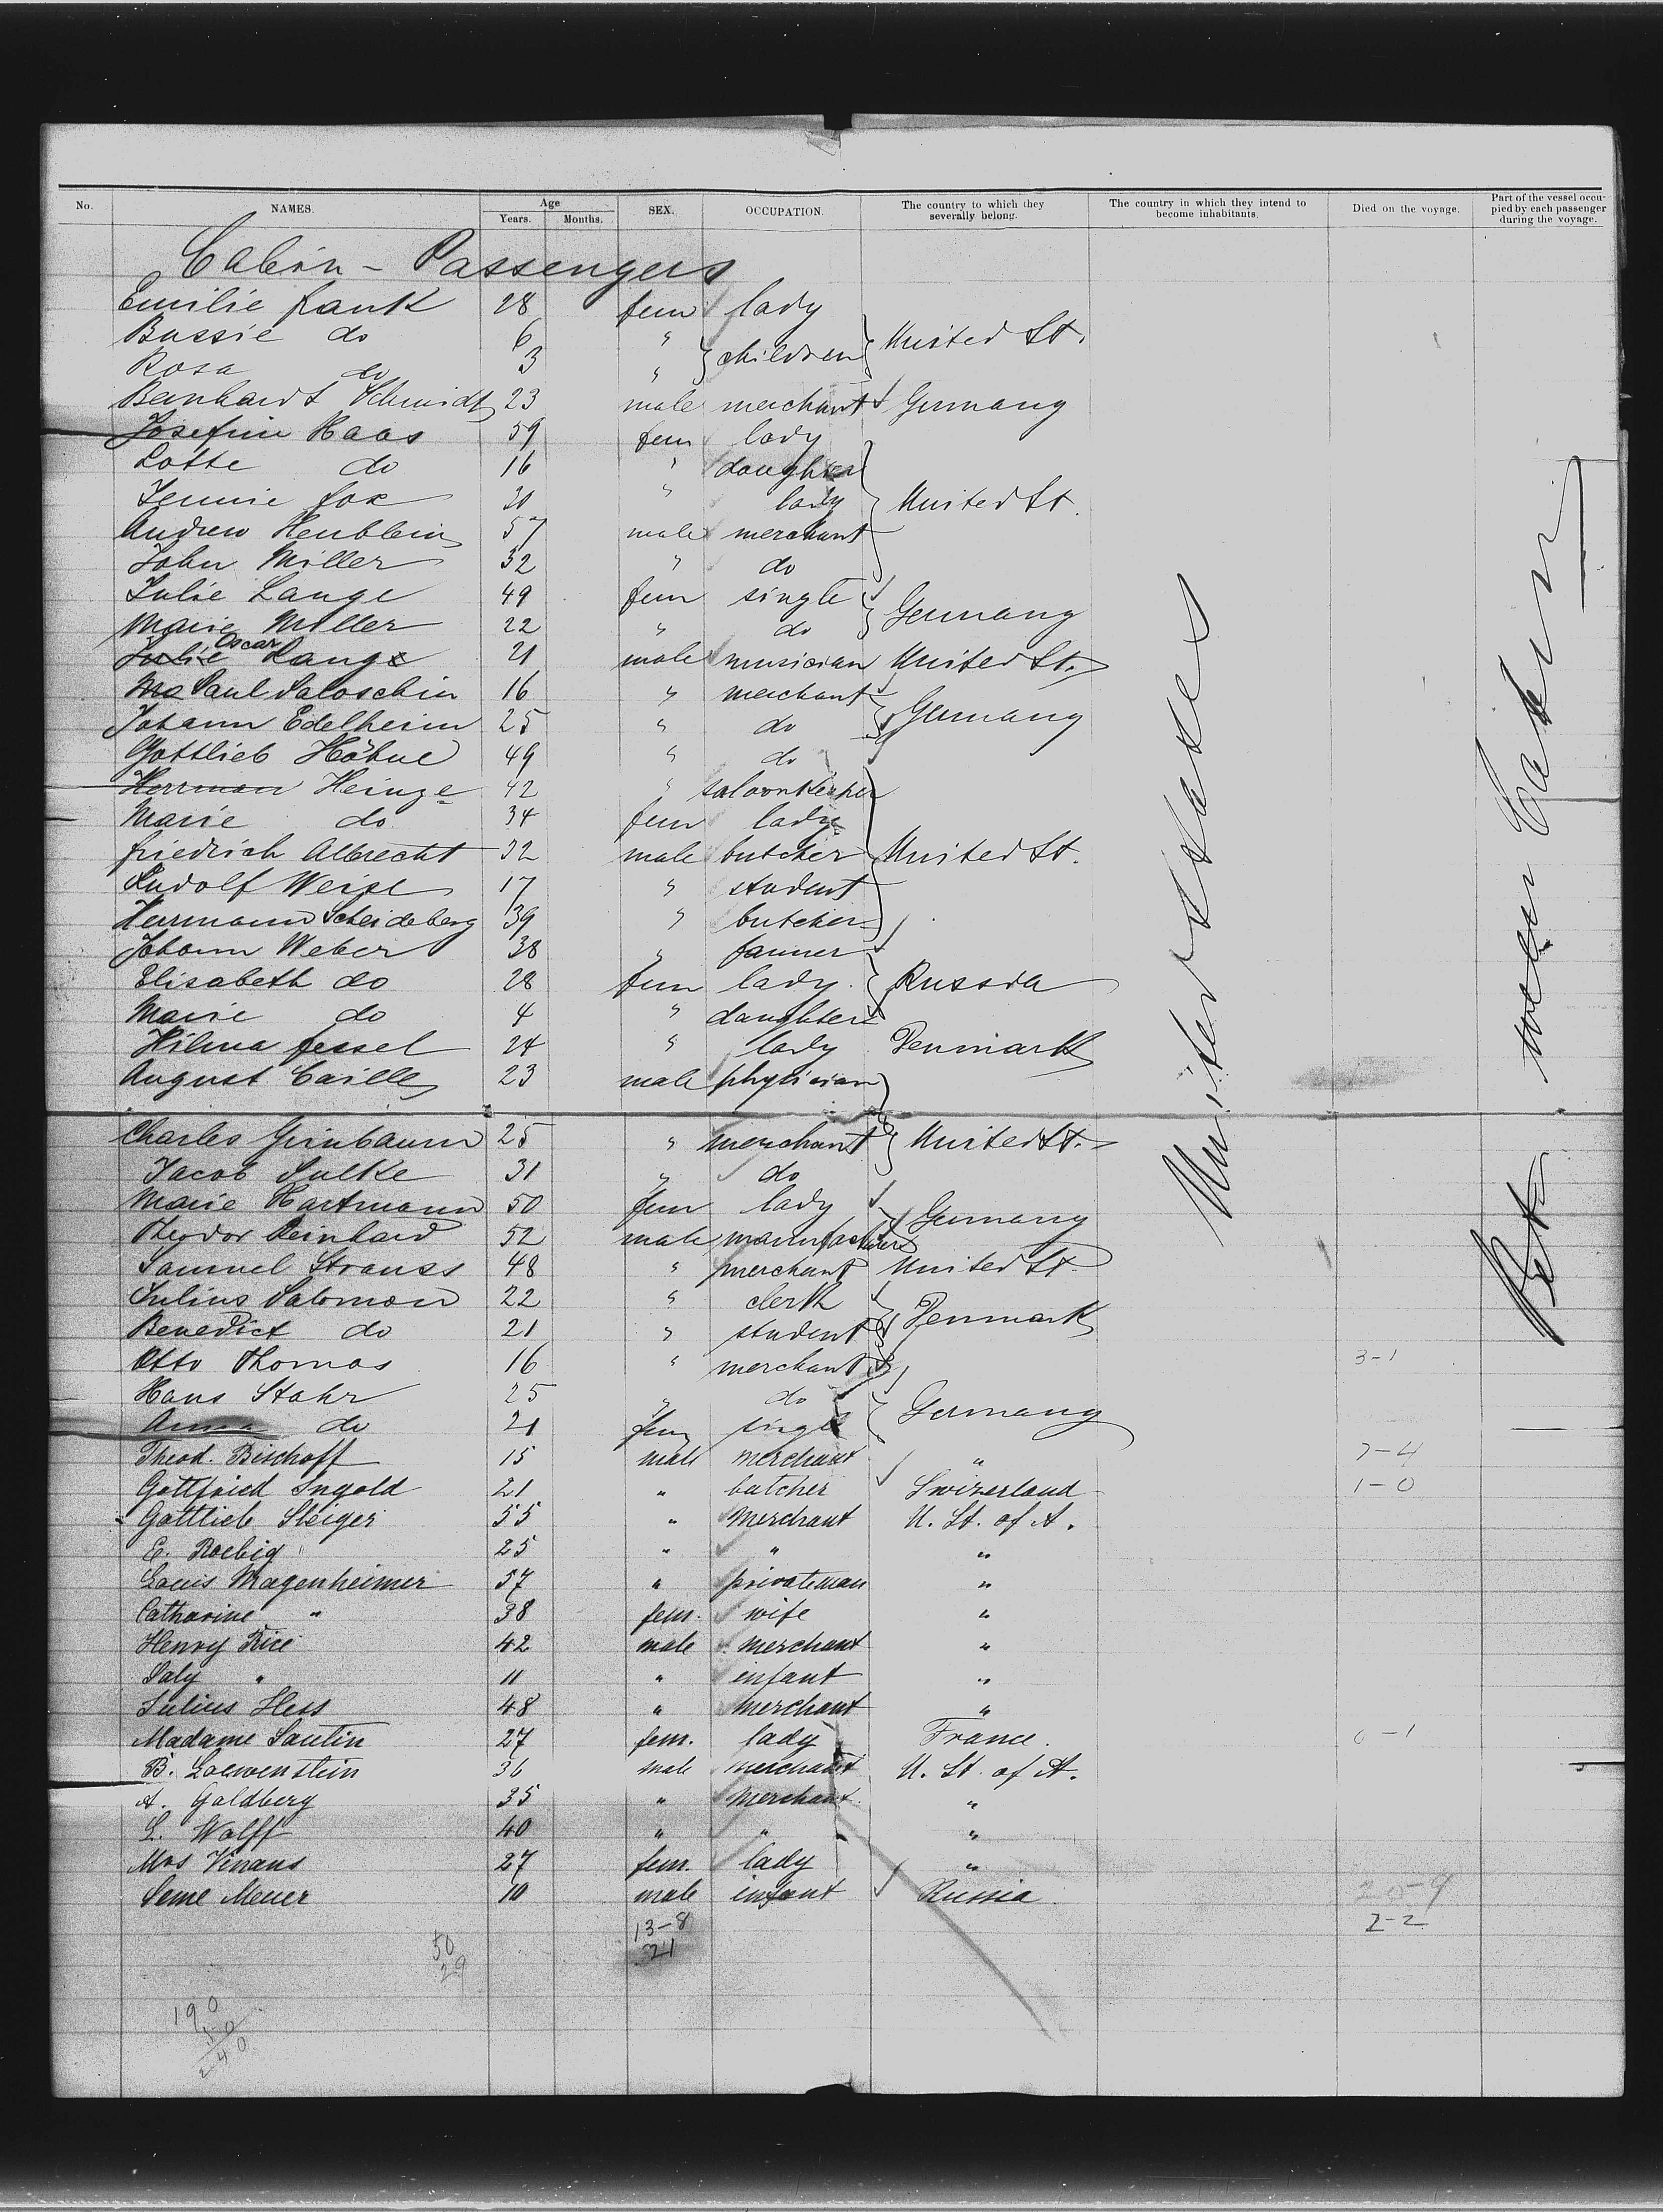 No. NAMES. Age Years. Months. SEX. OCCUPATION. The country to which they severally belong. The country in which they intend to become inhabitants. Died on the voyage. Part of the vessel occupied by each passenger during the voyage.
Cabin - Passengers
Emilie Frank 28 fem lady
Bassie do 6 " children United St.
Rosa do 3 "
Bernhardt Schmidt 23 male merchant Germany
Josefine Haas 59 fem lady
Lotte do 16 " daughter
Jennie Fox 20 " lady United St.
Andrew Heublein 57 male merchant
John Miller 32 " do
Julie Lange 49 fem single Germany
Marie Müller 22 " do
Julie Oscar Lange 21 male musician United St.
Ma Paul Saloschin 16 " merchant Germany
Johann Edelheim 25 " do
Gottlieb Höhne 49 " do
Herrman Heinze 42 " saloonkeeper
Marie do 34 fem lady
Friedrich Albrecht 32 male butcher United St.
Rudolf Weise 17 " student
Herrmann Scheideberg 39 " butcher
Johann Weber 38 " farmer
Elisabeth do 28 fem lady Russia
Marie do 4 " daughter
Hilma Fessel 24 " lady Denmark
August Caille 23 male physician
Charles Grinbaum 25 " merchant United St.
Jacob Sulke 31 " do
Marie Hartmann 50 fem lady Germany
Theodor Reinhard 52 male manufacturer
Samuel Strauss 48 " merchant United St.
Julius Salomon 22 " clerk Denmark
Benedict do 21 " student
Otto Thomas 16 " merchant 3-1
Hans Stahr 25 " do Germany
Anna do 21 fem single
Theod. Bischoff 15 male merchant " 7-4
Gottfried Ingold 21 " butcher Swizerland 1-0
Gottlieb Steiger 55 " Merchant U. St. of A.
E. Roebig 25 " " "
Louis Magenheimer 57 " privateman "
Catharine " 38 fem. wife "
Henry Rice 42 male merchant "
Saly " 11 " infant "
Julius Hess 48 " merchant "
Madame Saulin 27 fem. lady France. 0-1
B. Loewenstein 36 male merchant U. St. of A.
A. Goldberg 35 " merchant "
L. Wolff 40 " " "
Mrs Vinans 27 fem. lady "
Seme Meuer 10 male infant Russia 20-9
2-2
13-8
21
50
29
190
50
240
United States